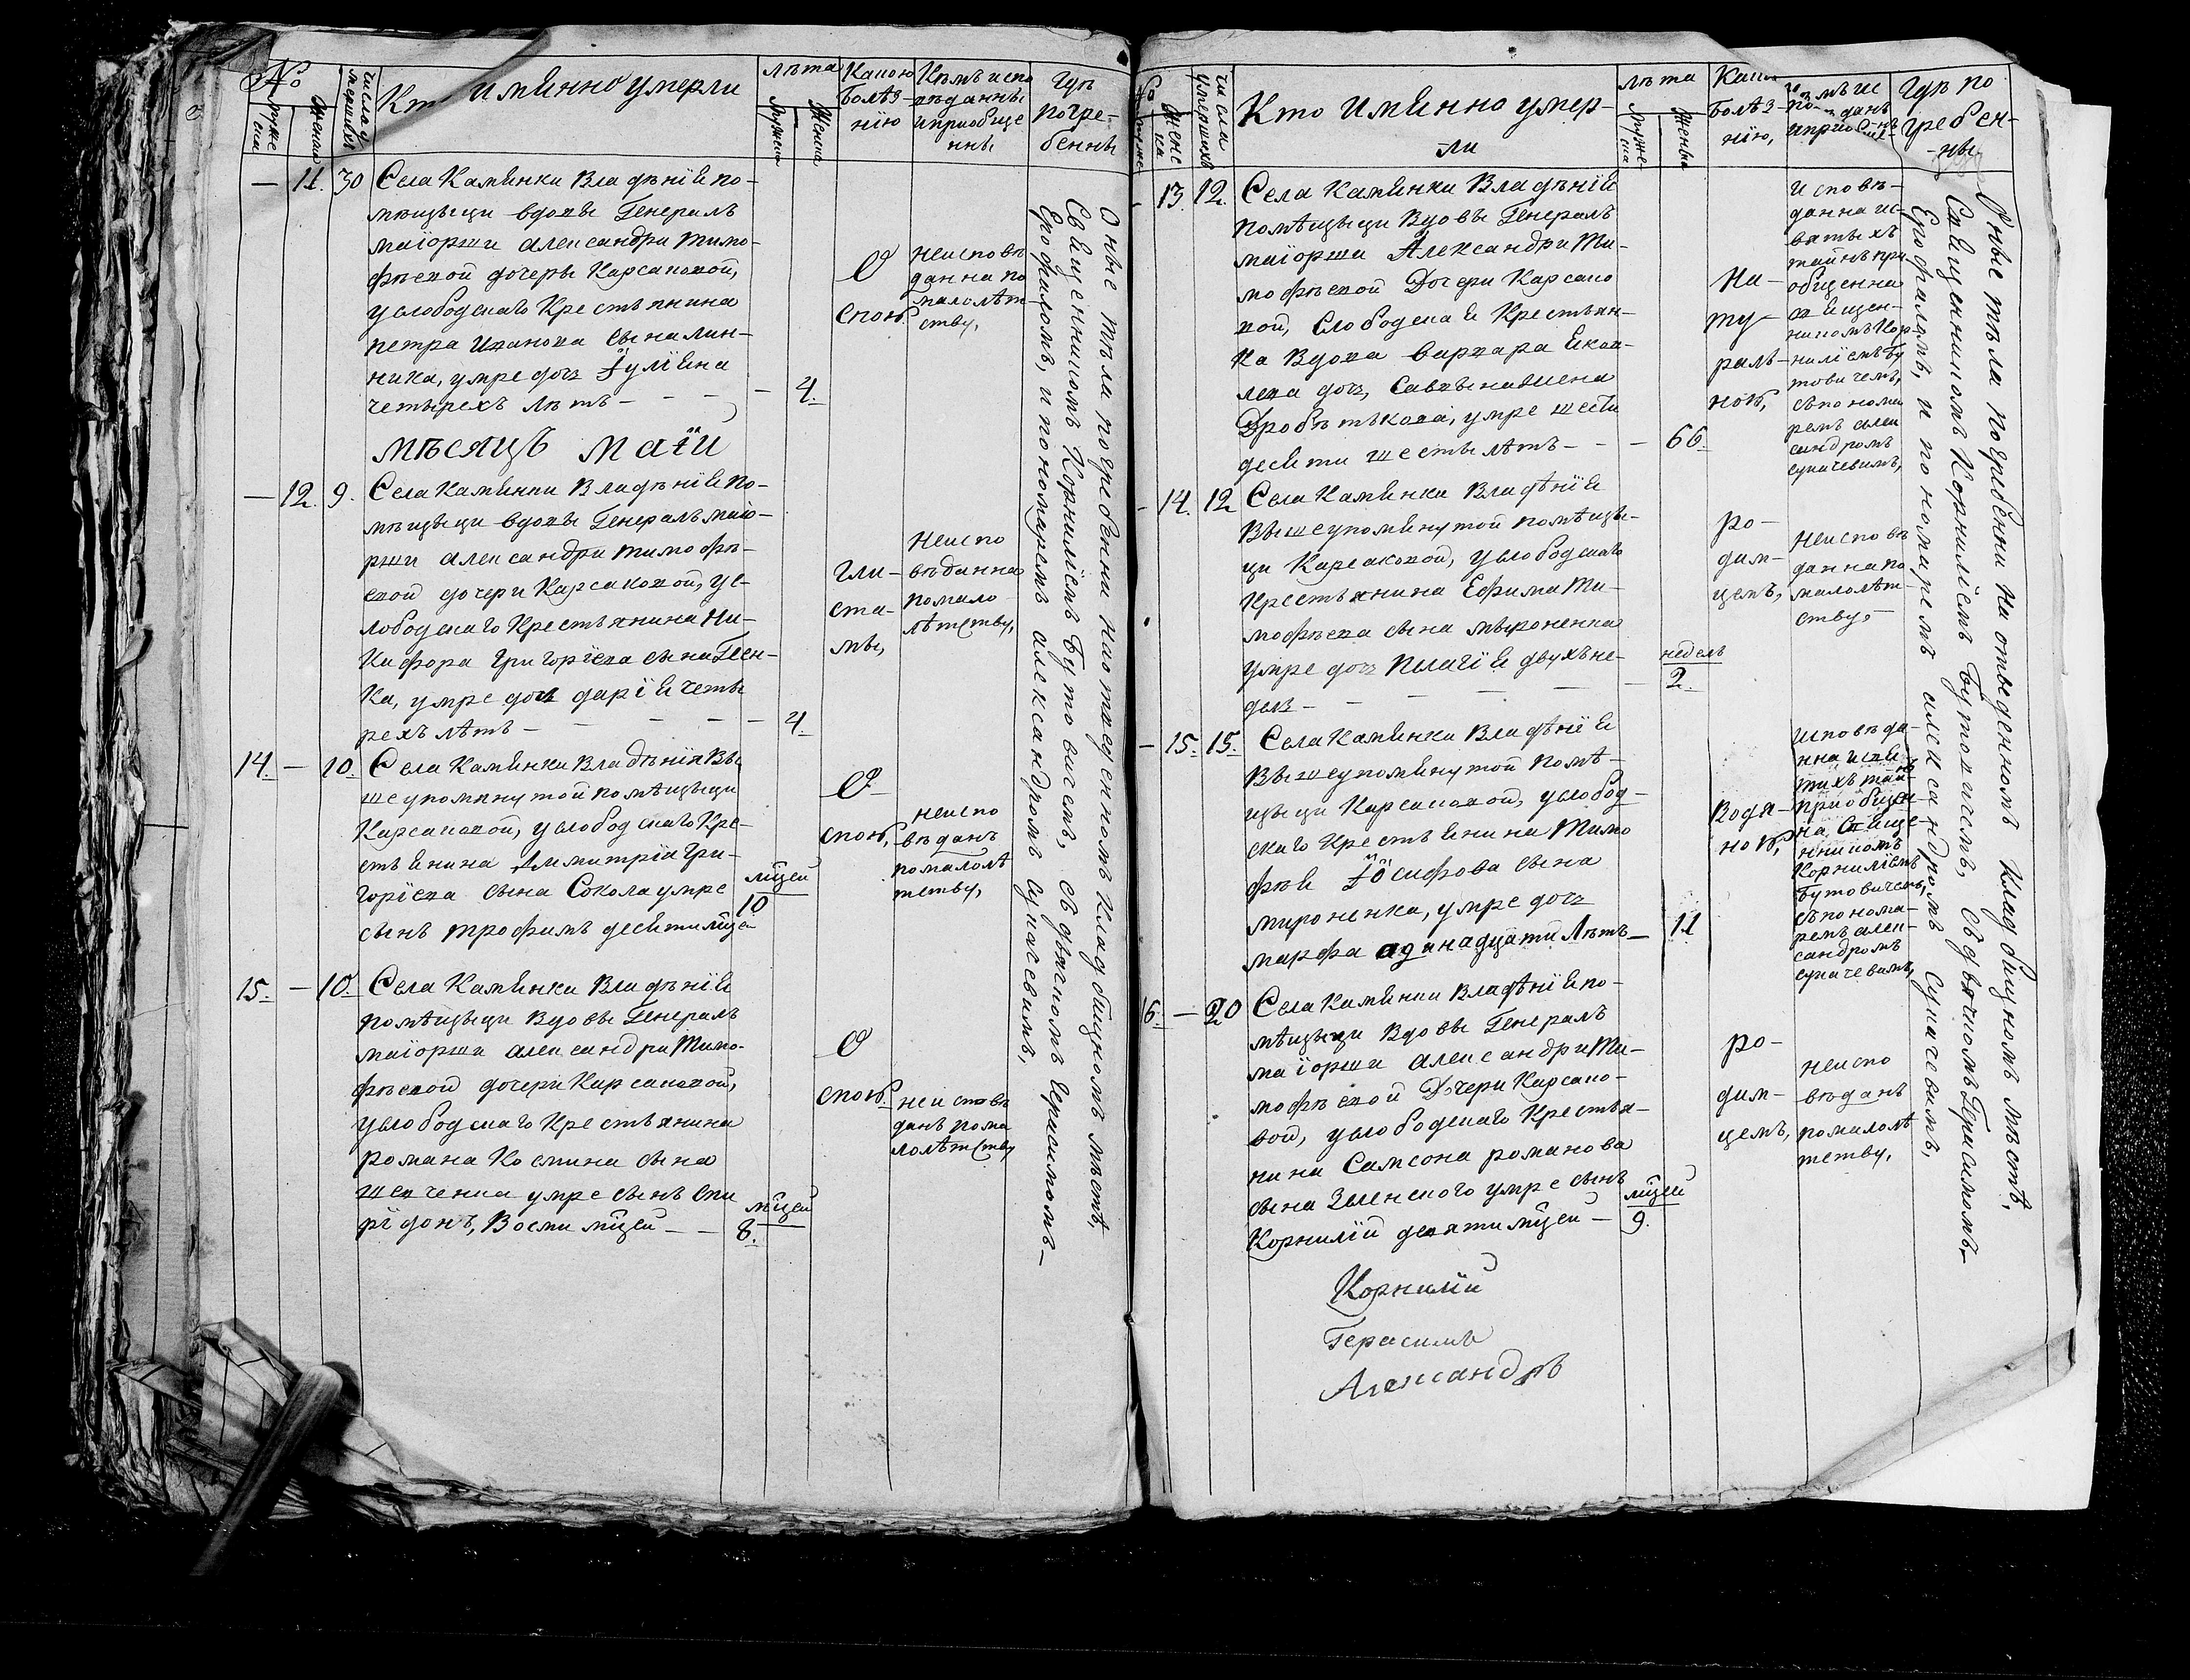 №
муже
ска
женска
числа у
мершихъ
Кто имянно умерли
лѣта
мужеска
женска
Какою
болѣз-
нію
Кѣмъ испо
вѣданны
и приобще
нны
Гдѣ
погре-
бенны
— 11. 30
Села Камянки владѣнія по-
мѣщыци вдовы Генералъ
маіорши александри тимо-
фѣевой дочеры Карсаковой,
услободскаго Крестьянина
петра иванова сына лин-
ника, умре дочь Іуліяна
четырехъ лѣтъ — — —
— 4.
О
спою.
неисповѣ
данна по
малолѣт
ству,
мѣсяцъ маія
— 12. 9.
Села Камянки владѣнія по-
мѣщыци вдовы Генералъ маіо-
рши александри тимофѣ-
евой дочери Карсаковой, ус-
лободскаго Крестьянина Ни-
кифора григоріева сына
ка, умре дочь дарія четы
рехъ лѣтъ — — — —
— 4.
гли-
ста-
мы,
неиспо
вѣданна
помало
лѣтству,
14. — 10.
Села Камянки владѣнія вы
шеупомянутой помѣщыци
Карсаковой, услободскаго Кре-
стьянина Димитрія гри-
горіева сына Сокола умре
сынъ трофимъ десяти мцей
мцей
10
О
спою,
неиспо
вѣданъ
помалолѣ
тству,
15. — 10.
Села Камянки владѣнія
помѣщыци вдовы Генералъ
маіорши александри Тимо-
фѣевой дочери Карсаковой,
услободскаго Крестьянина
романа Космина сына
шевченка умре сынъ спи
ридонъ, восми мцей — —
мцей
8.
О
спою.
неисповѣ
данъ пома
лолѣтству
Оные тѣла погребенны на отведенномъ кладбищномъ мѣстѣ,
Священникомъ Корниліемъ Бутовичемъ, съ дьячкомъ Герасимомъ —
Ерофаломъ, и пономаремъ александромъ Сукачевимъ,
№
муже
женс
ка
числа
умершихъ
Кто имянно умер-
ли
лѣта
муже-
ска
жены
Какою
болѣз-
нію,
Кѣмъ ис
по-
данъ
и приобщ
Гдѣ по
гребен-
ны
— 13. 12.
Села Камянки владѣнія
помѣщыци вдовы Генералъ
маіорши Александри Ти-
мофѣевой Дочери Карсако
вой, слободская Крестьян-
ка вдова варвара Яков-
лева дочь, Саввы
Дробѣткова, умре шесть
десяти шесты лѣтъ — — —
66.
На-
ту-
раль-
ною,
исповѣ-
данна ис-
вятыхъ
тайнъ при
общенна
священ-
никомъ Кор-
ниліемъ Бу
товичемъ,
съ понома
ремъ алек
сандромъ
сукачевимъ,
— 14. 12
Села Камянки владѣнія
вышеупомянутой помѣщы-
ци Карсаковой, услободскаго
крестьянина Ефима Ти-
мофѣева сына мироненка
умре дочь Пелагія двухъ не-
дель — — — — —
недель
2.
ро-
дим-
цемъ,
неисповѣ
данна по
малолѣт-
ству,
— 15. 15.
Села Камянки владѣнія
вышеупомянутой помѣ-
щыци Карсаковой, услобод-
скаго крестьянина Тимо
фѣя Іосифова сына
мироненка, умре дочь
марфа адинадцати лѣтъ —
11
водя-
ною,
исповѣда-
нна и свя-
тихъ тайнъ
приобщен
на, Свяще
нникомъ
Корниліемъ
Бутовичемъ,
съ понома-
ремъ алек-
сандромъ
сукачевимъ,
16. — 20
Села Камянки владѣнія по-
мѣщыци вдовы Генералъ
маіорши александри Ти-
мофѣевой Дочери Карсако-
вой, услободскаго крестья-
нина Самсона романова
сына Зеленского умре сынъ
Корнилій девяти мцей —
мцей
9.
ро-
дим-
цемъ,
неиспо
вѣданъ
помалолѣ
тству,
Оные тѣла погребенны на отведенномъ кладбищномъ мѣстѣ,
Священникомъ Корниліемъ Бутовичемъ, съ дьячкомъ Герасимомъ
Ерофаломъ, и пономаремъ александромъ Сукачевимъ,
Корнилій
Герасимъ
Александръ